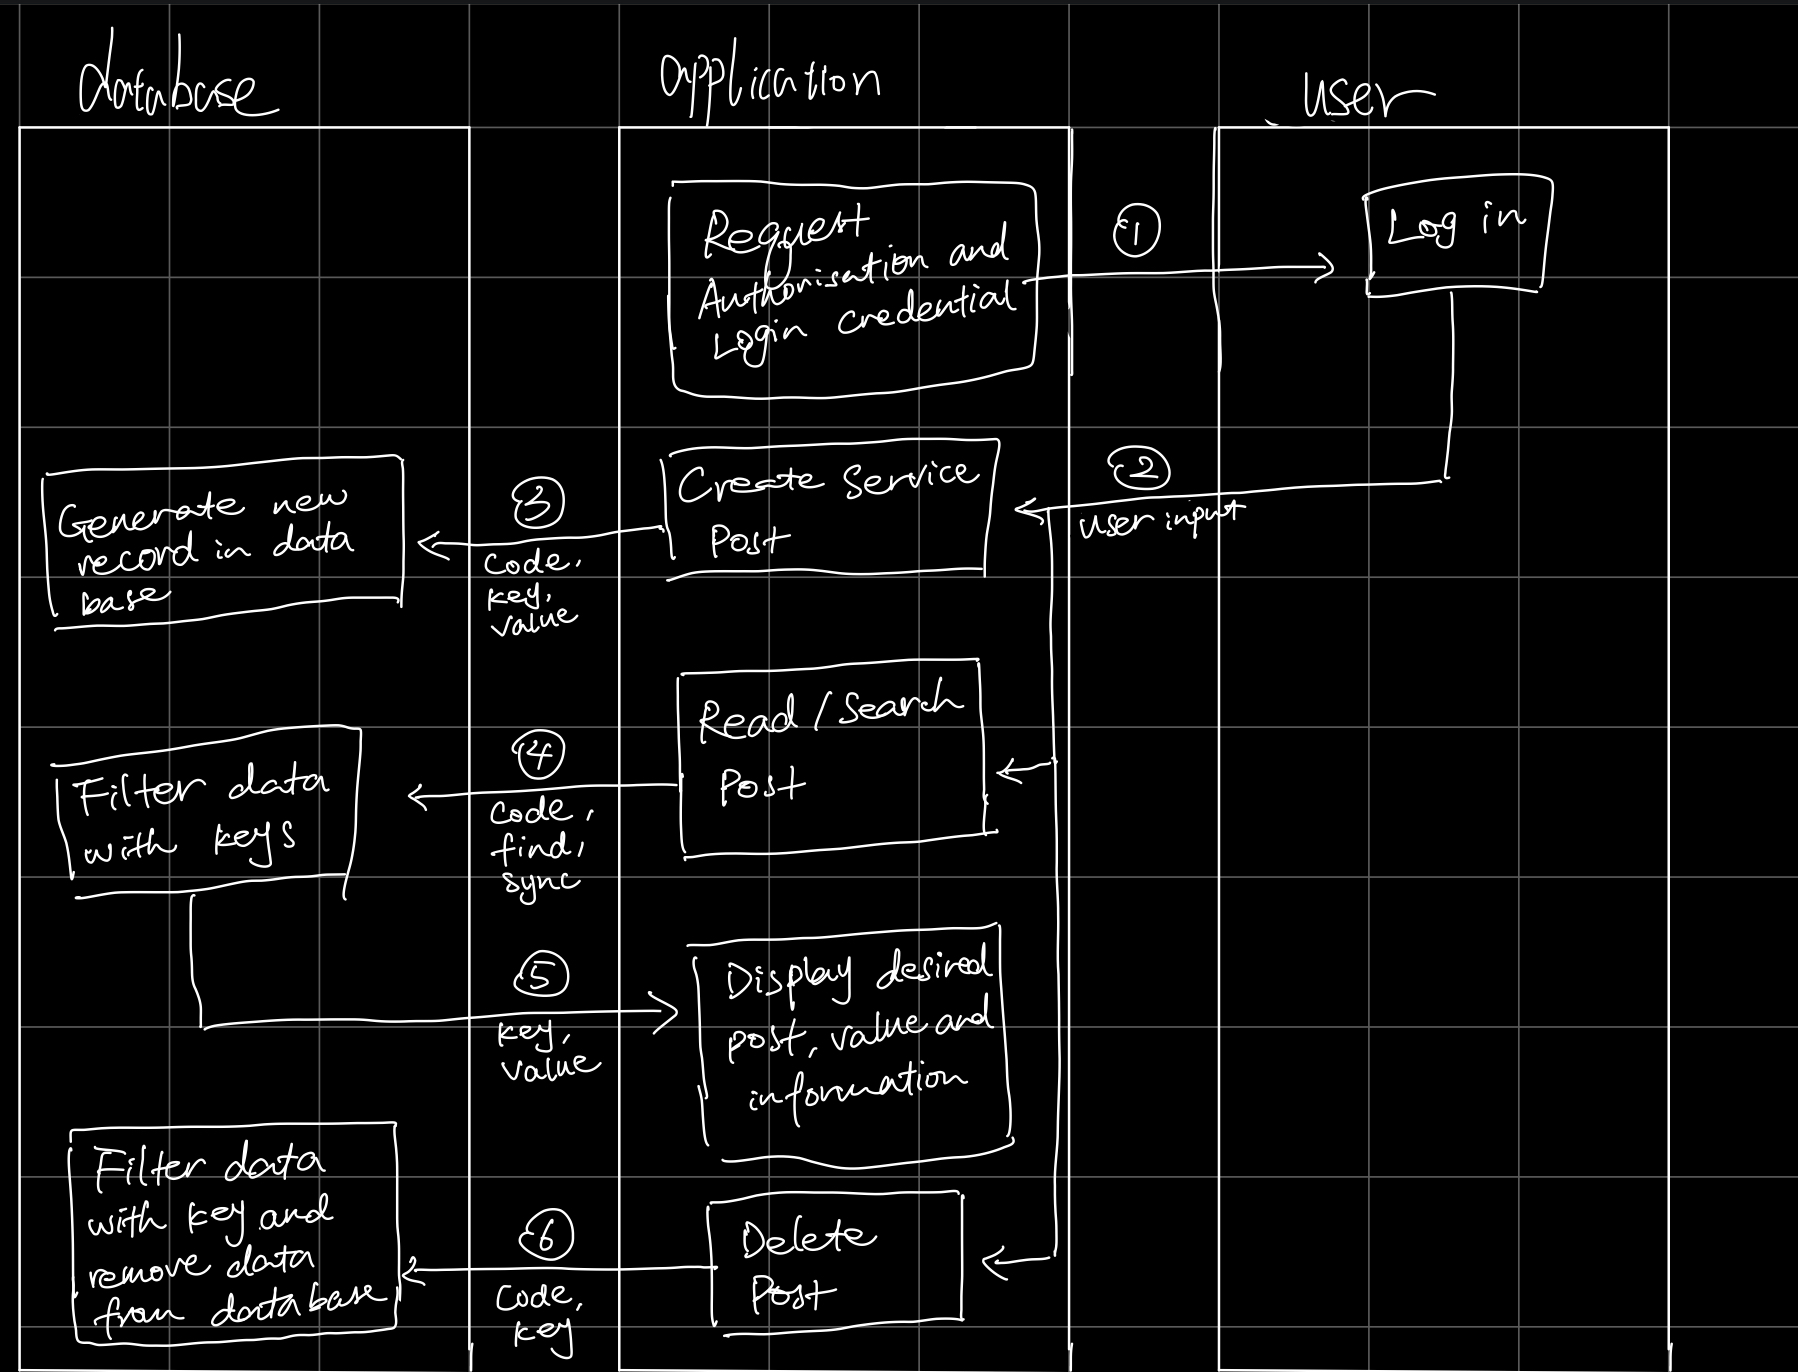 database
application
user
Request
Authorisation and
Login credential
1
Log in
Create Service
Post
2
user input
3
code,
key,
value
Generate new
record in data
base
Read / Search
Post
4
code,
find,
sync
Filter data
with keys
5
key,
value
Display desired
post, value and
information
Delete
Post
6
Code,
key
Filter data
with key and
remove data
from database